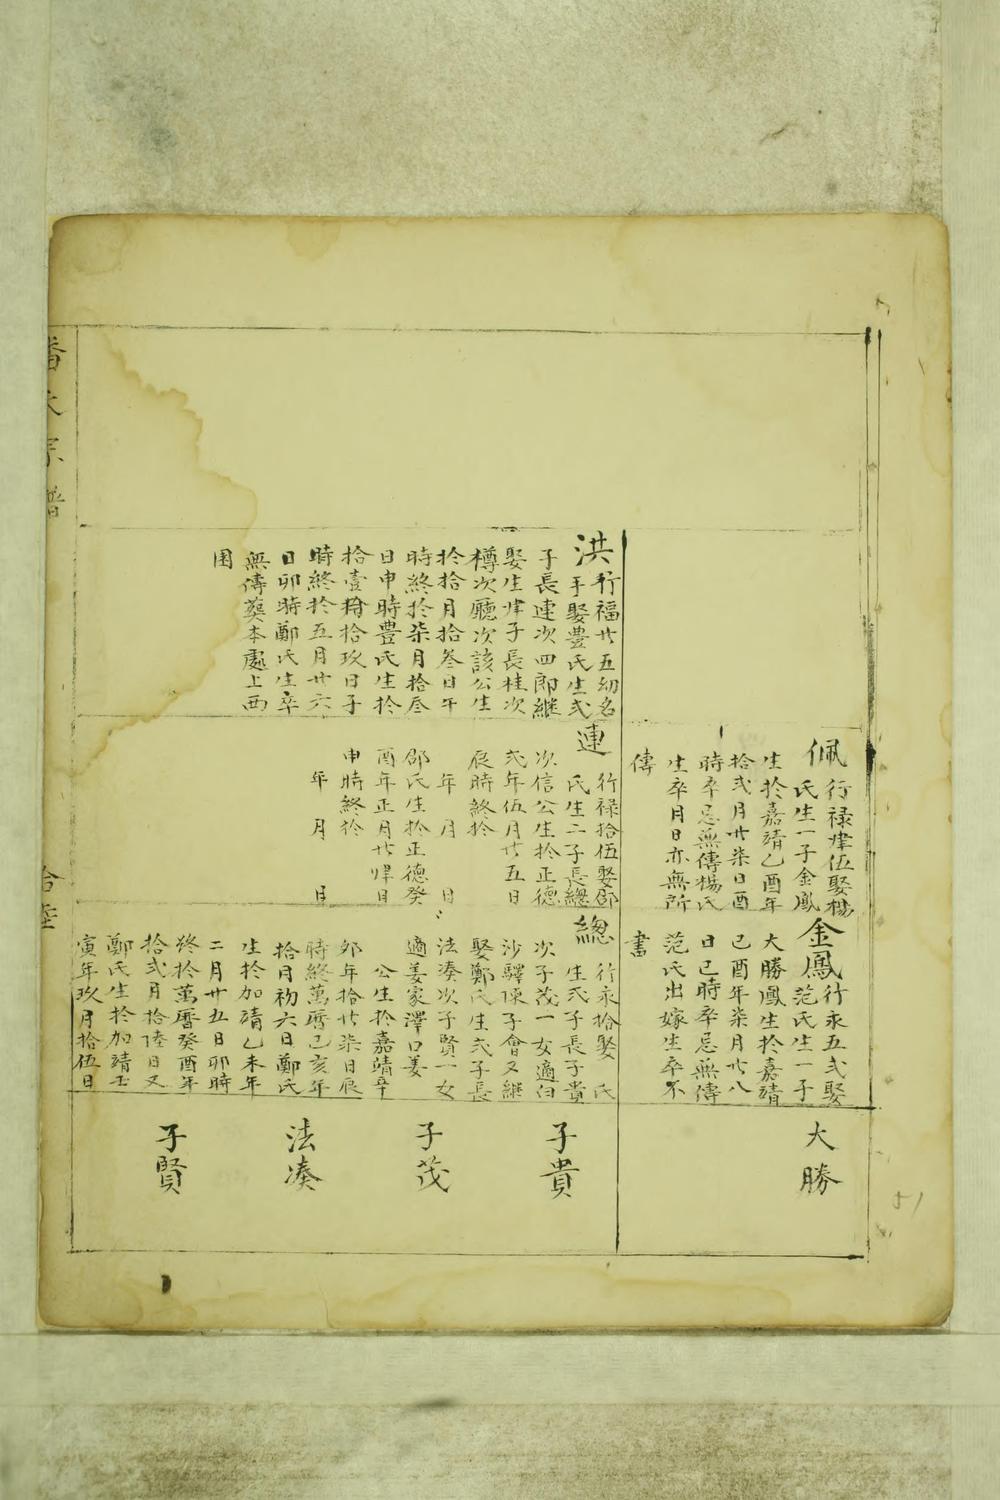 佩
行禄肆伍娶楊
氏生一子金鳳
生於嘉靖乙酉年
拾弍月廿柒日酉
時卒忌無傳楊氏
生卒月日亦無所
傳
金鳳
行永五弍娶
范氏生一子
大勝鳳生於嘉靖
己酉年柒月廿八
日巳時卒忌無傳
范氏出嫁生卒不
書
大勝
洪
行福廿五幼名
手娶豊氏生弍
子長連次四郎継
娶生肆子長桂次
樽次廳次該公生
於拾月拾叁日午
時終於柒月拾叁
日申時豊氏生於
拾壹月拾玖日子
時終於五月廿六
日卯時鄭氏生卒
無傳葬本處上西
囷
連
行禄拾伍娶邵
氏生二子長總
次信公生於正德
弍年伍月廿五日
辰時終於
年 月 日
邵氏生於正德癸
酉年正月廿肆日
申時終於
年 月 日
總
行永拾娶 氏
生弍子長子貴
次子茂一女適白
沙驛陳子會又継
娶鄭氏生弍子長
法湊次子賢一女
適姜家澤口姜
公生於嘉靖辛
卯年拾廿柒日辰
時終萬曆己亥年
拾月初六日鄭氏
生於加靖乙未年
二月廿五日卯時
終於萬曆癸酉年
拾弍月拾陸日又
鄭氏生於加靖壬
寅年玖月拾伍日
子貴
子茂
法湊
子賢
潘氏宗譜
拾陸
51